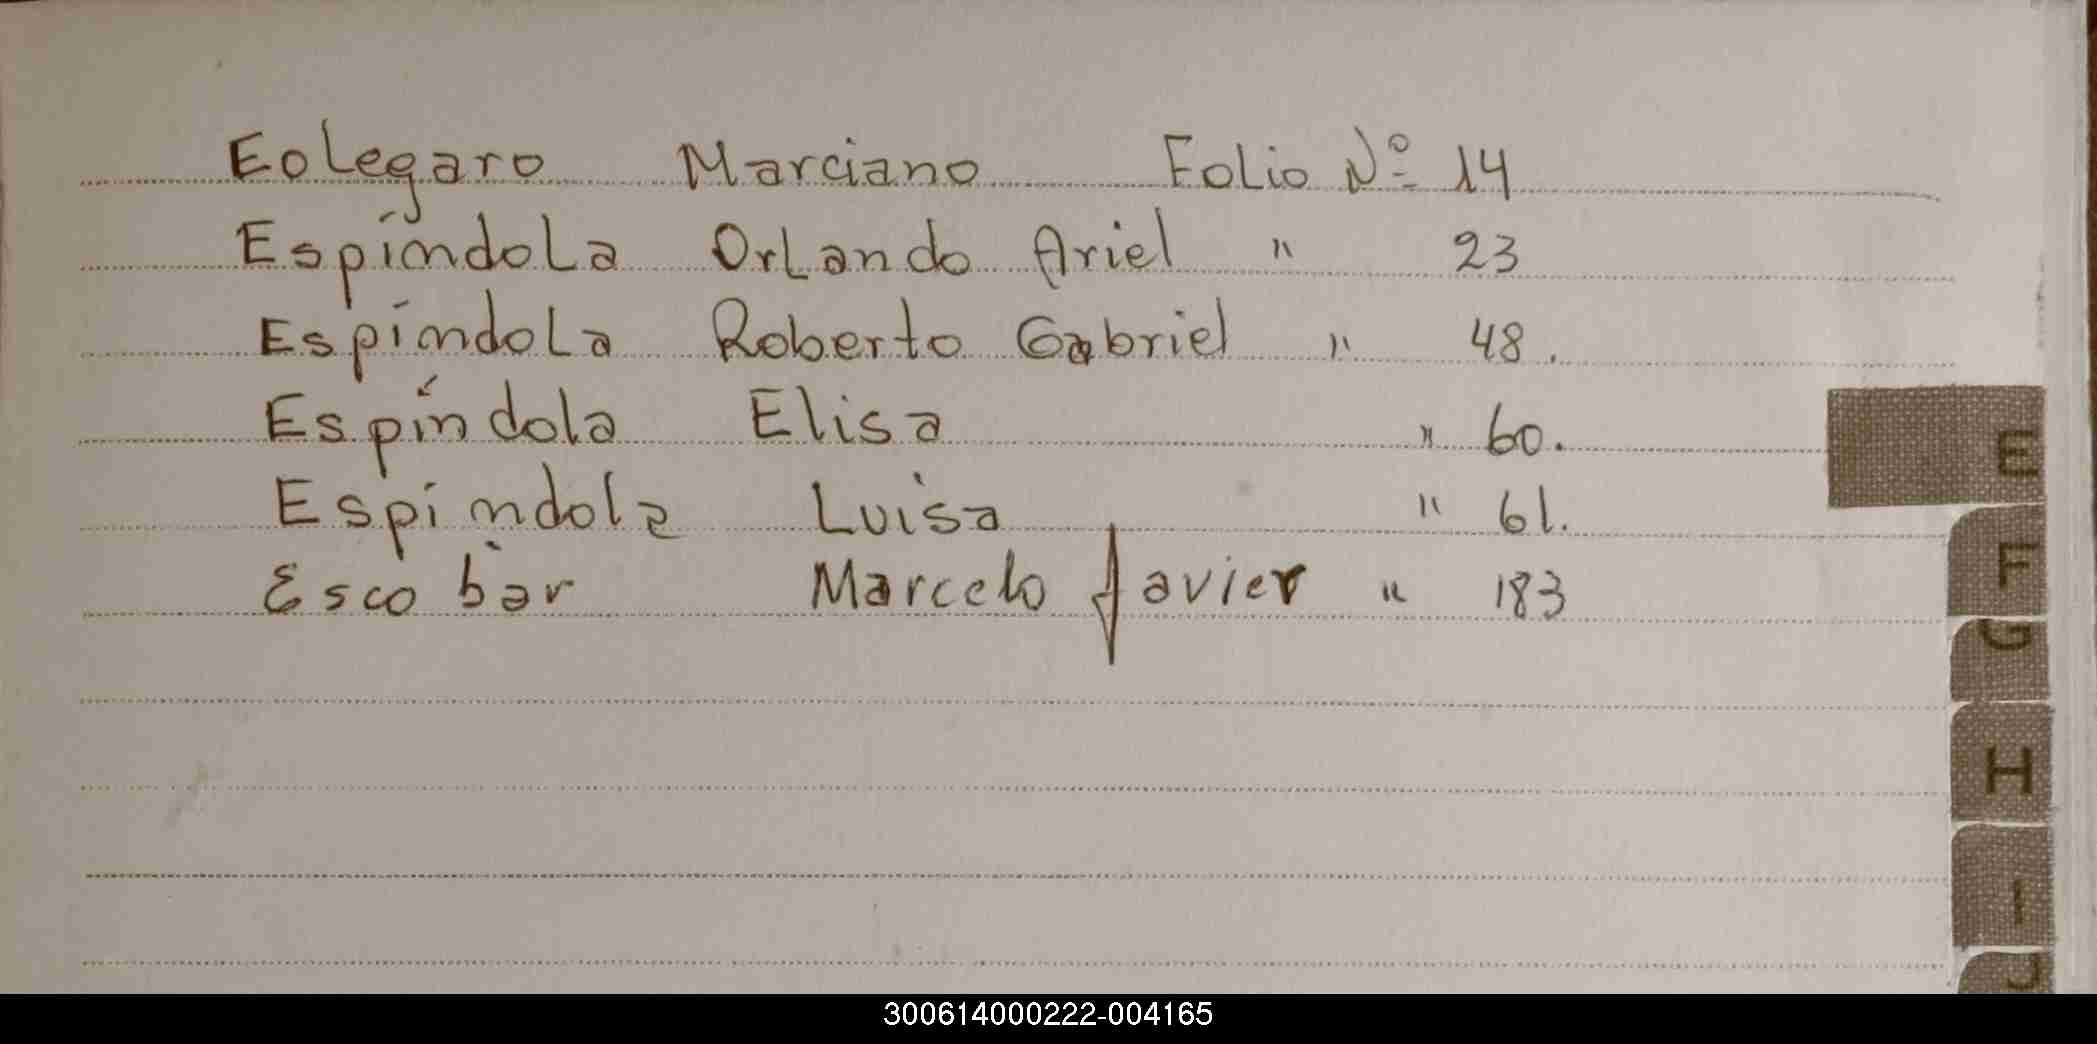 Eolegaro Marciano Folio Nº 14
Espíndola Orlando Ariel " 23
Espíndola Roberto Gabriel " 48.
Espíndola Elisa " 60.
Espindola Luisa " 61.
Escobar Marcelo Javier " 183
E
F
G
H
I
J
300614000222-004165